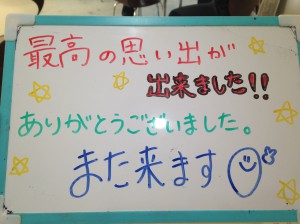 最高の思い出が
出来ました!!
ありがとうございました。
また来ます